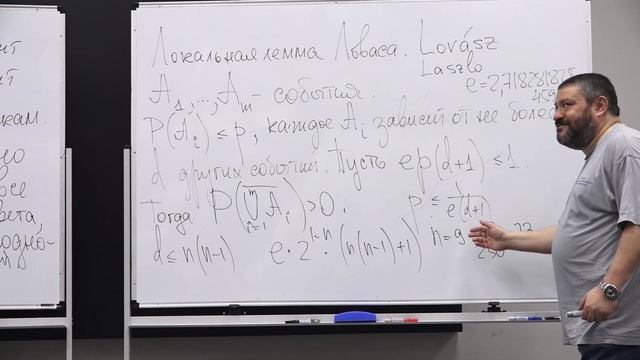 нт
нт
кам.
но
осе
вета,
одно-
й
Локальная лемма Ловаса. Lovász
Laszlo
e=2,718281828
459
A₁,...,Aₘ - события.
P(Aᵢ) ≤ p, каждое Aᵢ зависит от не более
d других событий. Пусть ep(d+1) ≤ 1.
Тогда P(\overline{⋃ᵢ₌₁ᵐ Aᵢ})>0. p ≤ 1/e(d+1)
d ≤ n(n-1) e·2¹⁻ⁿ·(n(n-1)+1) n=9